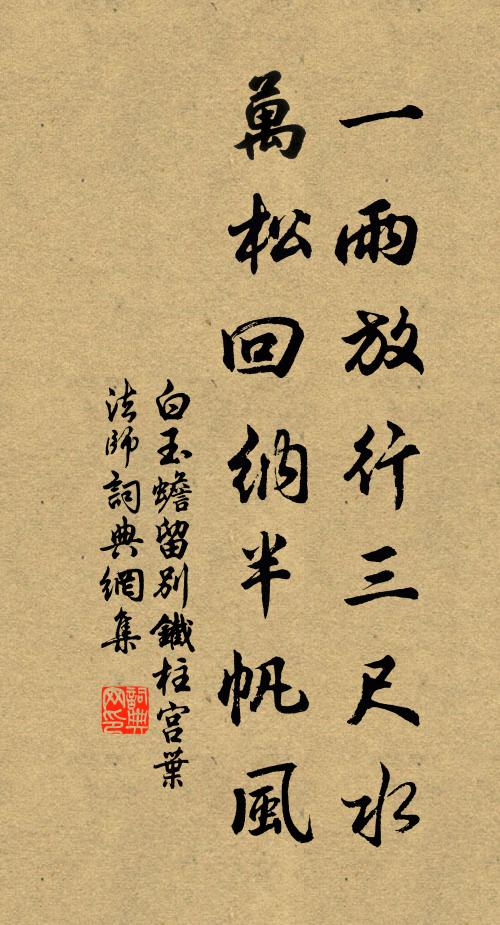 一雨放行三尺水
萬松回納半帆風
白玉蟾留別鐵柱宮葉
法師詞典網集
詞典
网印